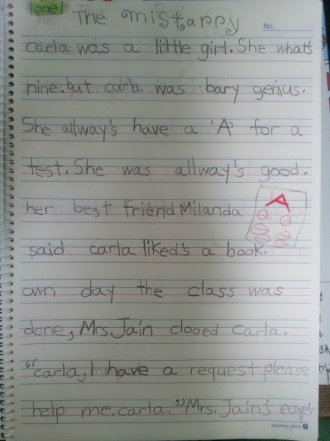 one
The mistappy
No.
carla was a little girl. She what's
nine. but carla was bary genius.
She allway's have a 'A' for a
test. She was allway's good.
A
her best friend Milanda
said carla liked's a book.
own day the class was
done, Mrs. Jain clooed Carla.
"carla, I have a request please
help me. carla." Mrs. Jain's eaye's